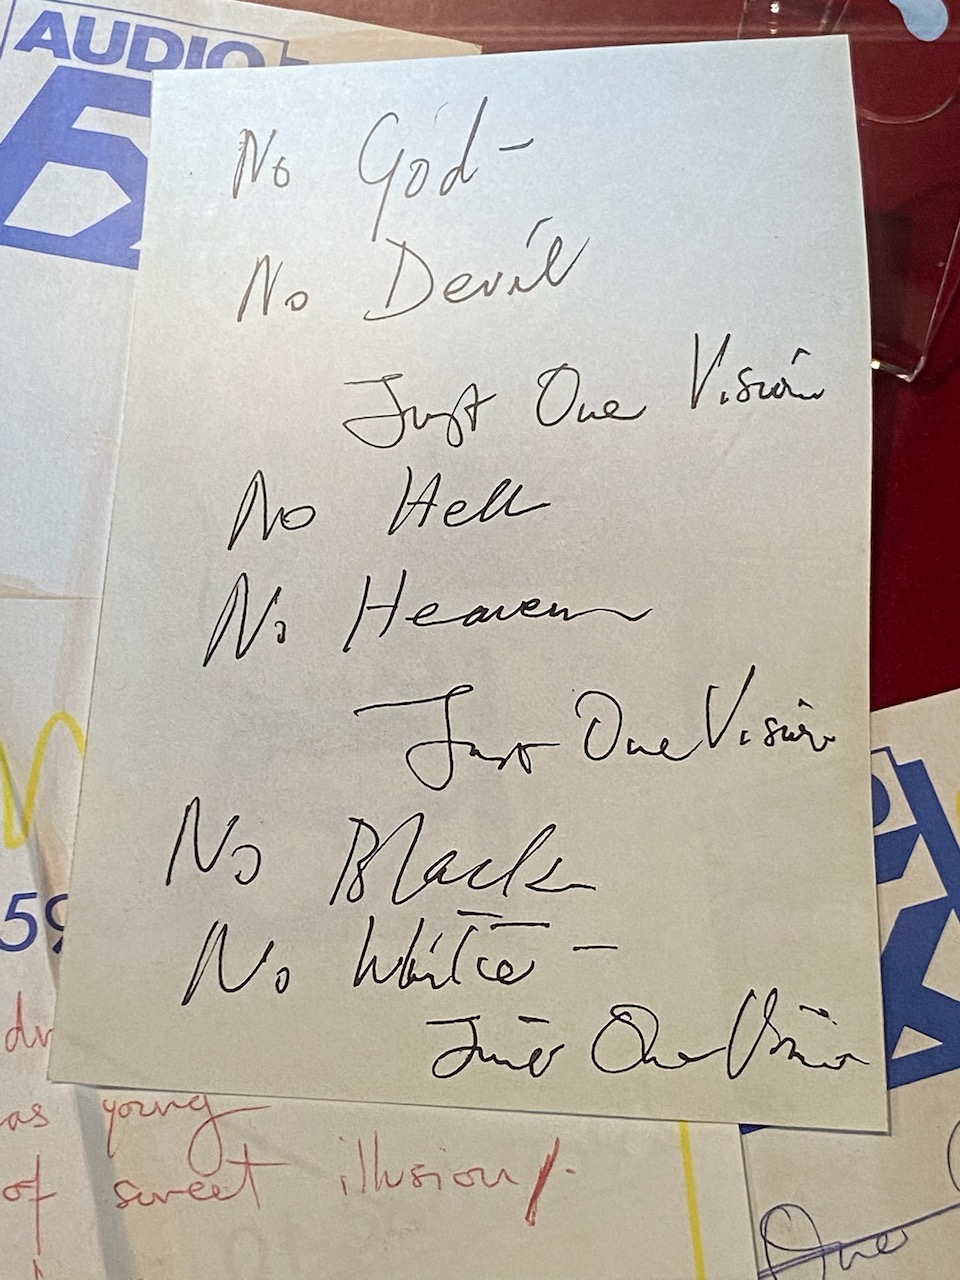 AUDIO
No God-
No Devil
Just One Vision
No Hell
No Heaven
Just One Vision
No Black
No White -
Just One Vision
59
as young
of sweet illusion/.
One